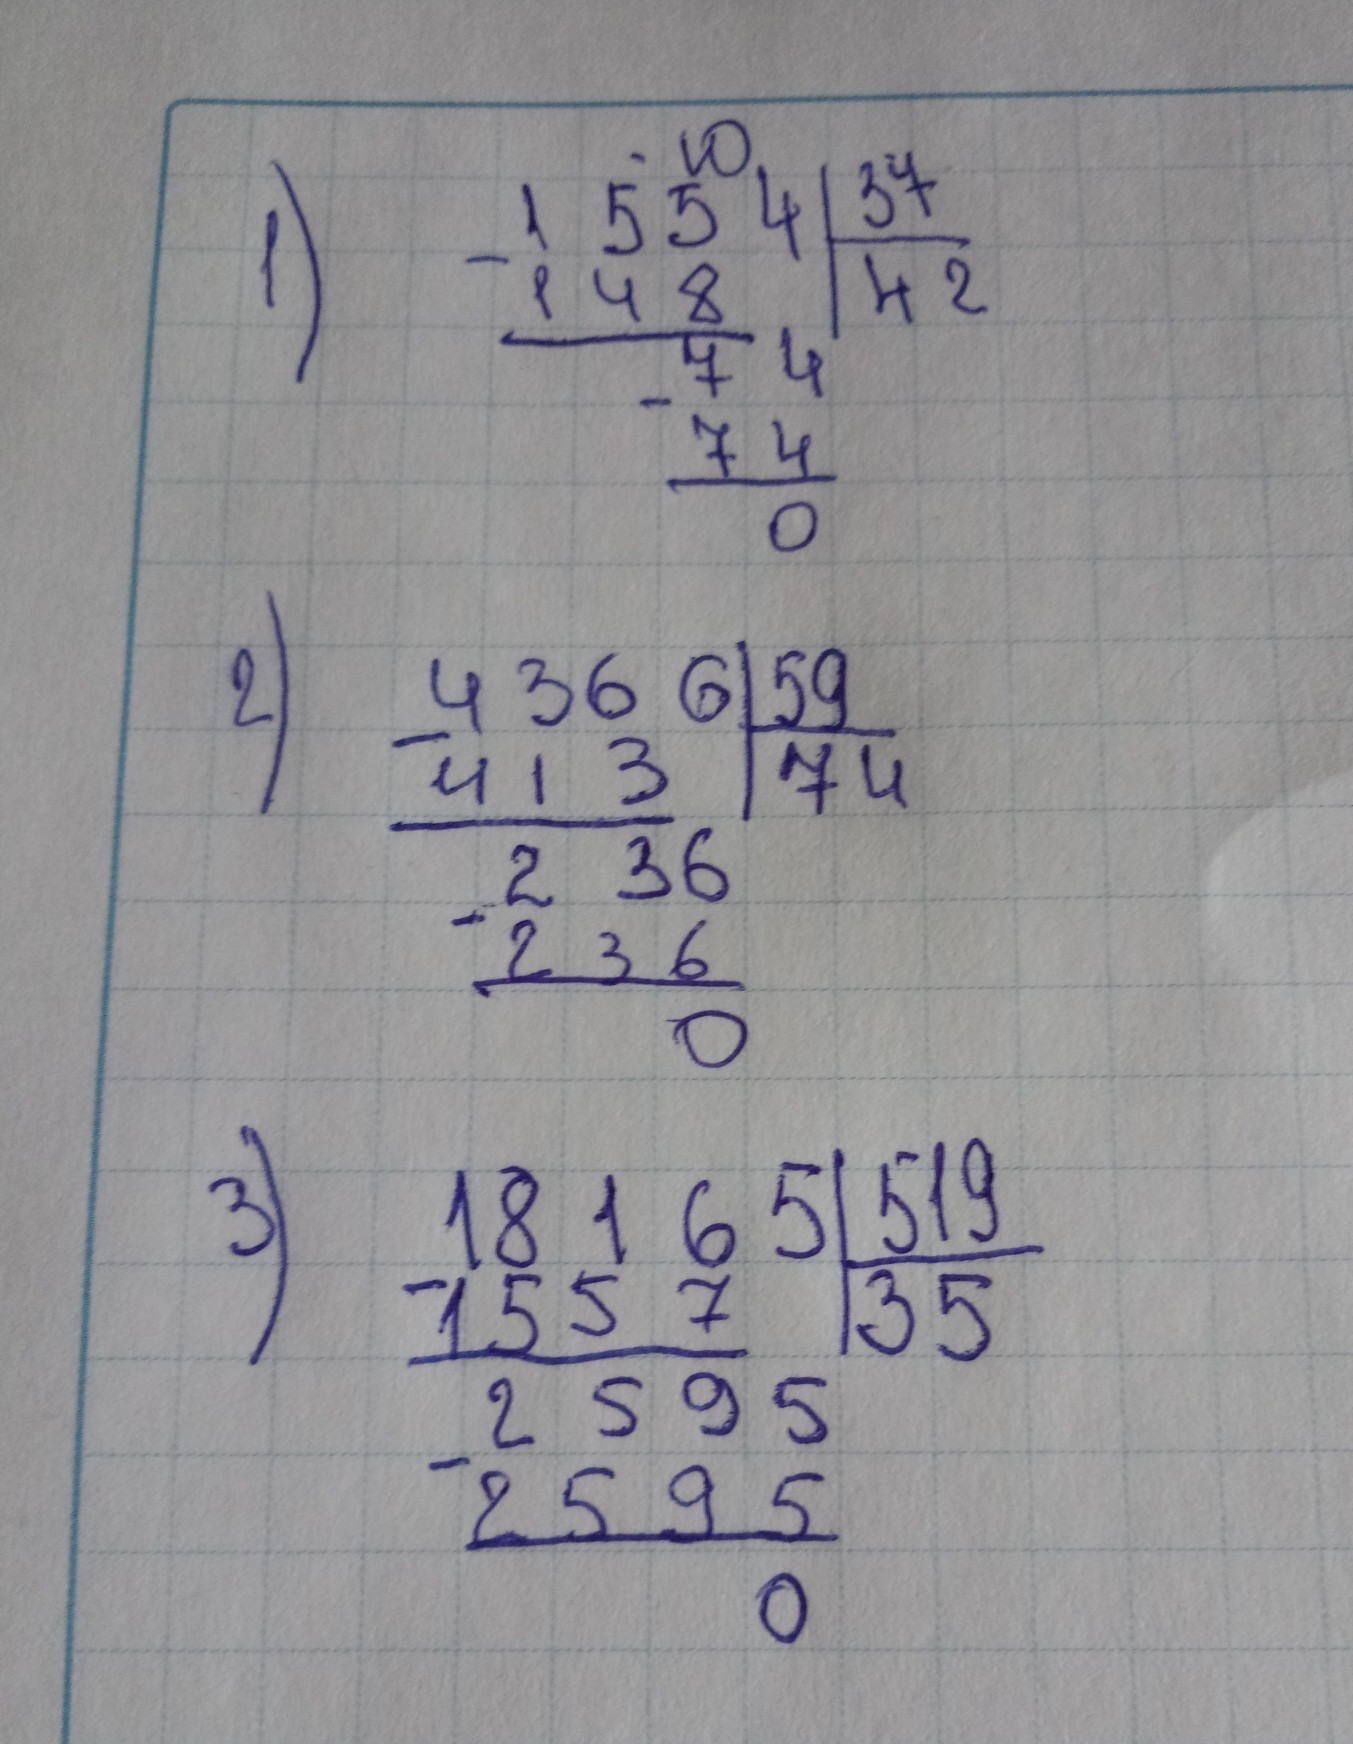 10
1) 1554 | 37
- 148 | 42
74
- 74
0
2) 4366 | 59
- 413 | 74
236
- 236
0
3) 18165 | 519
- 1557 | 35
2595
- 2595
0